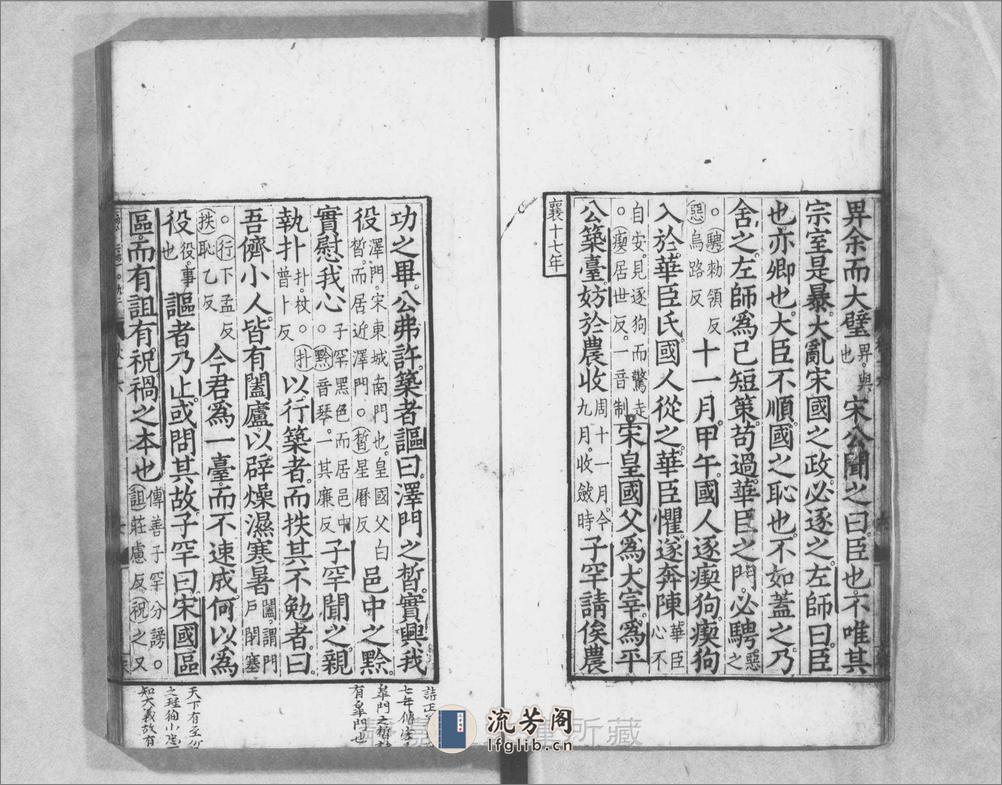 畀余而大璧畀與也宋公聞之曰臣也不唯其
宗室是暴大亂宋國之政必逐之左師曰臣
也亦卿也大臣不順國之恥也不如蓋之乃
舍之左師為己短策苟過華臣之門必騁惡之
○騁勑領反惡烏路反十一月甲午國人逐瘈狗瘈狗
入於華臣氏國人從之華臣懼遂奔陳華臣心不
自安見逐狗而驚走○瘈居世反一音制宋皇國父為大宰為平
公築臺妨於農收周十一月今九月收斂時子罕請俟農
襄十七年
功之畢公弗許築者謳曰澤門之晳實興我
役澤門宋東城南門也皇國父白晳而居近澤門○晳星曆反邑中之黔
實慰我心子罕黑色而居邑中○黔音琴一其廉反子罕聞之親
執扑扑杖○扑普卜反以行築者而抶其不勉者曰
吾儕小人皆有闔廬以辟燥濕寒暑闔謂門戶閉塞
○行下孟反抶恥乙反今君為一臺而不速成何以為
役役事也謳者乃止或問其故子罕曰宋國區
區而有詛有祝禍之本也傳善子罕分謗○詛莊慮反祝之又
七年傳
皐門之晳
有皐門也
天下有至公
知大義故有
流芳阁
lfglib.cn
所藏